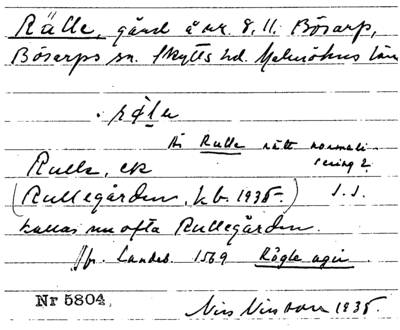 Rälle, gård å nr. 8, 11. Bösarp,
Bösarps sn. Skytts hd. Malmöhus län
Är Rulle rätt normali-
sering?
Rulle, ek
(Rullegården, k.b. 1935.) S.S.
kallas nu ofta Rullegården.
Jfr. Landeb. 1569 Rögle agir
Nr 5804.
Nils Nilsson 1935.